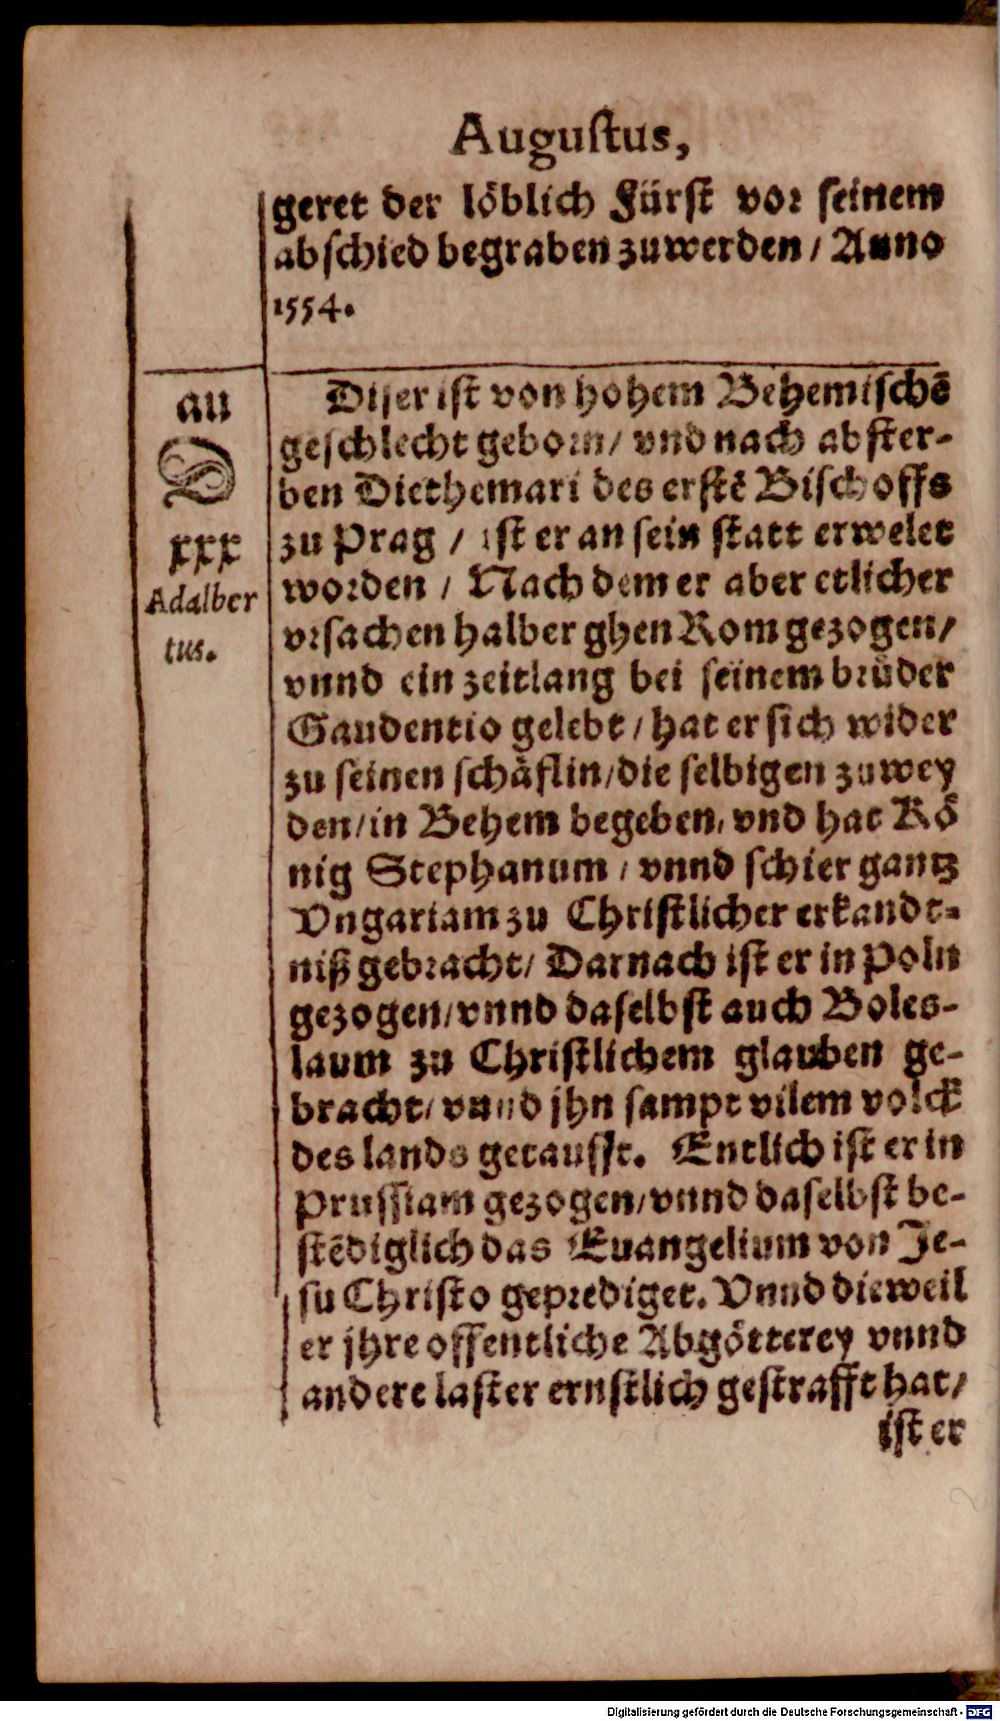 Augustus,
geret der löblich Fürst vor seinem
abschied begraben zuwerden / Anno
1554.
au
D
xxx
Adalber
tus.
Diser ist von hohem Behemischē
geschlecht geborn / vnd nach abster-
ben Diethemari des erstē Bischoffs
zu Prag / ist er an sein statt erwelet
worden / Nach dem er aber etlicher
vrsachen halber ghen Rom gezogen /
vnnd ein zeitlang bei seinem brüder
Gaudentio gelebt / hat er sich wider
zu seinen schäflin / die selbigen zuwey
den / in Behem begeben, vnd hat Kö
nig Stephanum / vnnd schier gantz
Vngariam zu Christlicher erkandt-
niß gebracht / Darnach ist er in Poln
gezogen / vnnd daselbst auch Boles-
laum zu Christlichem glauben ge-
bracht / vnnd jhn sampt vilem volck
des lands getaufft. Entlich ist er in
Prussiam gezogen / vnnd daselbst be-
stēdiglich das Euangelium von Je-
su Christo geprediget. Vnnd dieweil
er jhre offentliche Abgötterey vnnd
andere laster ernstlich gestrafft hat /
ist er
Digitalisierung gefördert durch die Deutsche Forschungsgemeinschaft - DFG